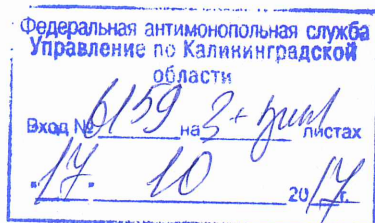 Федеральная антимонопольная служба
Управление по Калининградской
области
Вход № 6159 на 3 + листах
"17" 10 2017г.